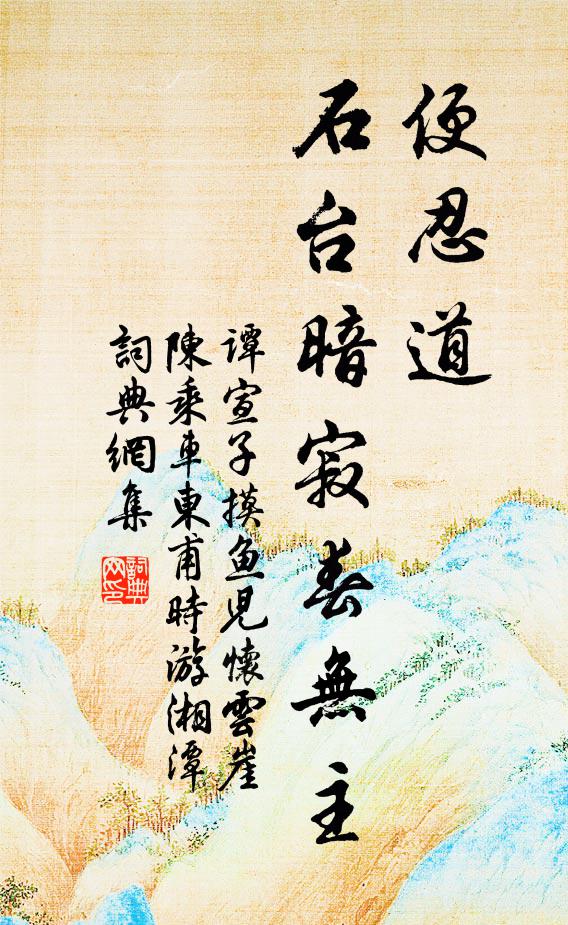 便忍道
石台暗寂春無主
譚宣子摸魚兒懷雲崖
陳乘車東甫時游湘潭
詞典網集
詞典
网印